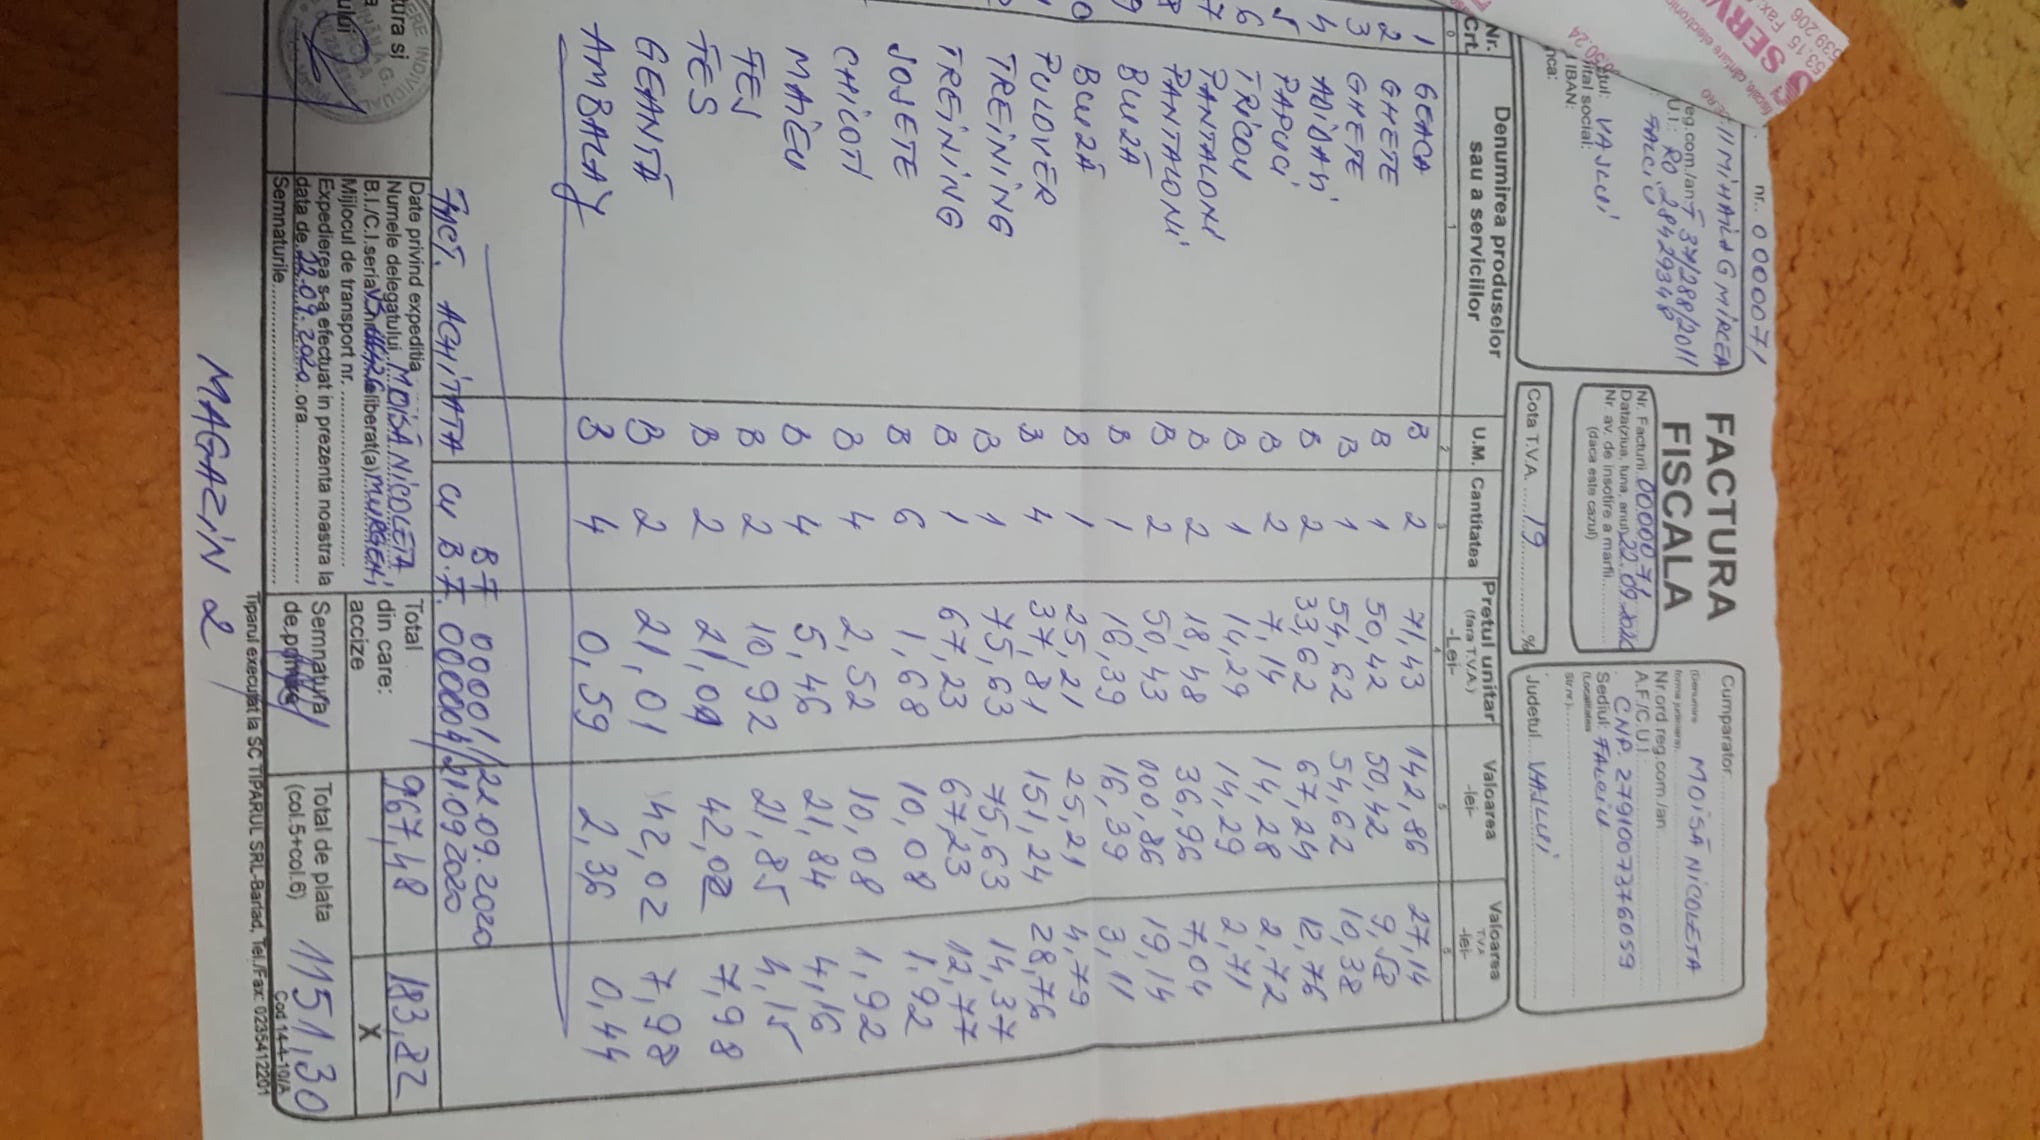 nr.. 0000071
II MIHAILA G MIRCEA
reg.com/an F 37/288/2011
RO 28429348
FALCIU
VASLUI
ital social:
IBAN:
FACTURA
FISCALA
Nr. Facturii 0000071
Data(ziua, luna, anul) 22.09.2020
Nr. av. de insotire a marfii
(daca este cazul)
Cota T.V.A. 19 %
Cumparator
MOISĂ NICOLETA
Nr.ord reg.com/an
A.F/C.U.I.
CNP. 2791007376059
Sediul: FALCIU
(Localitatea
Judetul VASLUI
Nr. Crt. Denumirea produselor sau a serviciilor U.M. Cantitatea Pretul unitar (fara T.V.A.) -Lei- Valoarea -lei- Valoarea T.V.A -lei-
0 1 2 3 4 5 6
1 GEACA B 2 71,43 142,86 27,14
2 GHETE B 1 50,42 50,42 9,58
3 GHETE B 1 54,62 54,62 10,38
4 ADIDASI B 2 33,62 67,24 12,76
5 PAPUCI B 2 7,14 14,28 2,72
6 TRICOU B 1 14,29 14,29 2,71
7 PANTALONI B 2 18,48 36,96 7,04
8 PANTALONI B 2 50,43 100,86 19,14
9 BLUZĂ B 1 16,39 16,39 3,11
0 BLUZĂ B 1 25,21 25,21 4,79
PULOVER B 4 37,81 151,24 28,76
TREINING B 1 75,63 75,63 14,37
TREINING B 1 67,23 67,23 12,77
SOSETE B 6 1,68 10,08 1,92
CHILOTI B 4 2,52 10,08 1,92
MAIEU B 4 5,46 21,84 4,16
FES B 2 10,92 21,85 4,15
FES B 2 21,01 42,02 7,98
GEANTĂ B 2 21,01 42,02 7,98
AMBALAJ B 4 0,59 2,36 0,44
BF 00001/22.09.2020
FACT. ACHITATA CU B.F. 000004/21092020
Date privind expeditia
Numele delegatului MOISĂ NICOLETA
B.I./C.I. seria VS eliberat(a) MURGENI
Mijlocul de transport nr.
Expedierea s-a efectuat in prezenta noastra la
data de 22.09.2020 ora
Semnaturile
Total 967,48 183,82
din care:
accize X
Semnatura
de primire
Total de plata
(col.5+col.6) 1151,30
Tiparul executat la SC TIPARUL SRL-Barlad, Tel./Fax: 0235412201
Cod 14-4-10/A
MAGAZIN 2